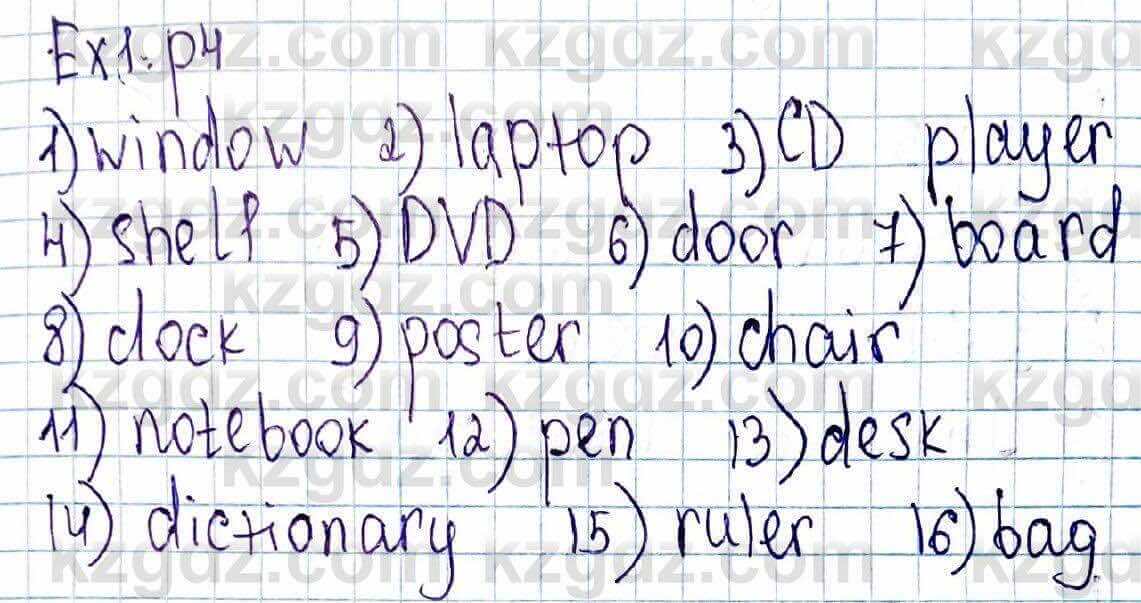 Ex1. p4
1) window 2) laptop 3) CD player
4) shelf 5) DVD 6) door 7) board
8) clock 9) poster 10) chair
11) notebook 12) pen 13) desk
14) dictionary 15) ruler 16) bag